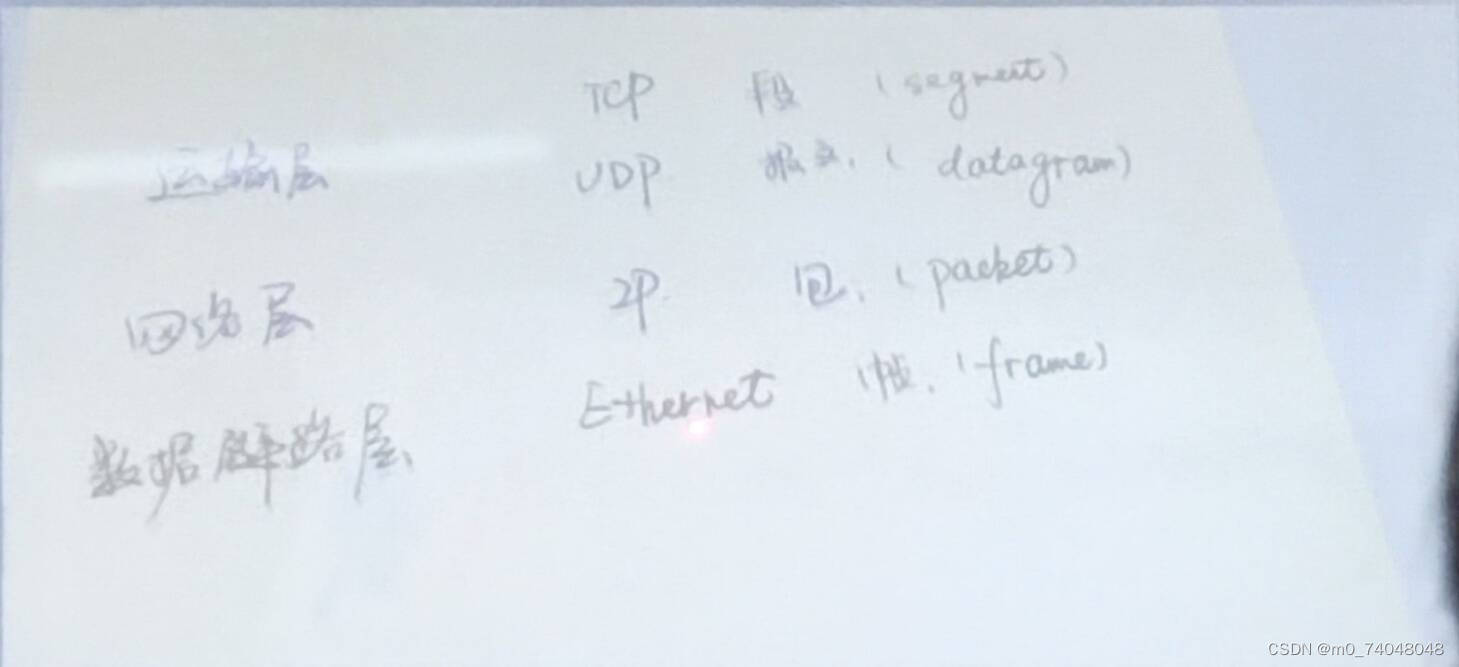 TCP 段 (segment)
运输层 UDP 报文. ( datagram)
网络层 IP 包. (packet)
数据链路层 Ethernet 帧. (frame)
CSDN @m0_74048048